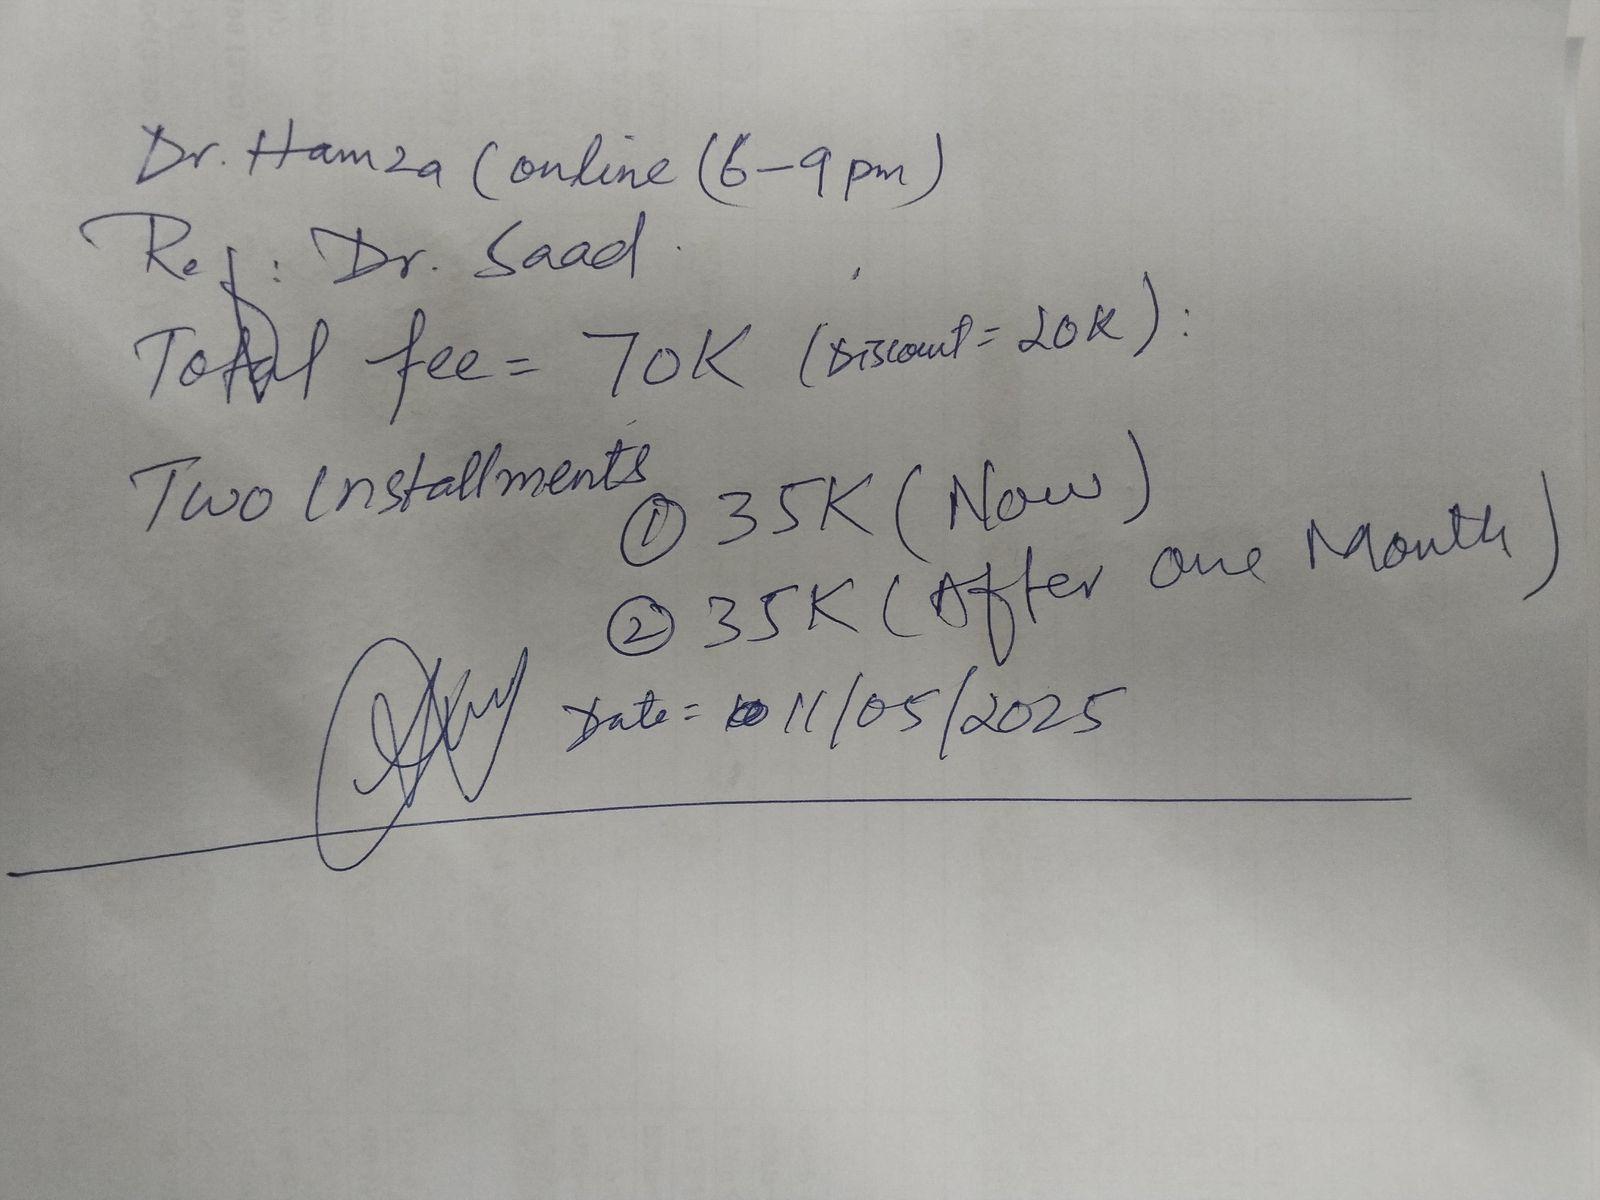 Dr. Hamza (online (6-9 pm)
Ref: Dr. Saad.
Total fee = 70K (Discount = 20K):
Two Installments
① 35K (Now)
② 35K (After one Month)
Date = 11/05/2025